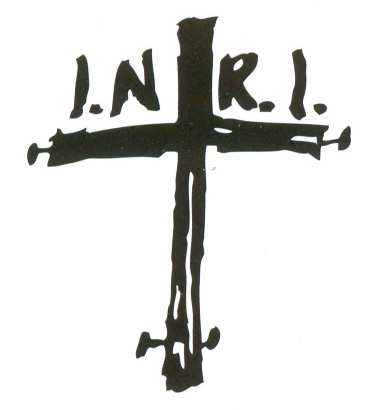 I.N R.I.